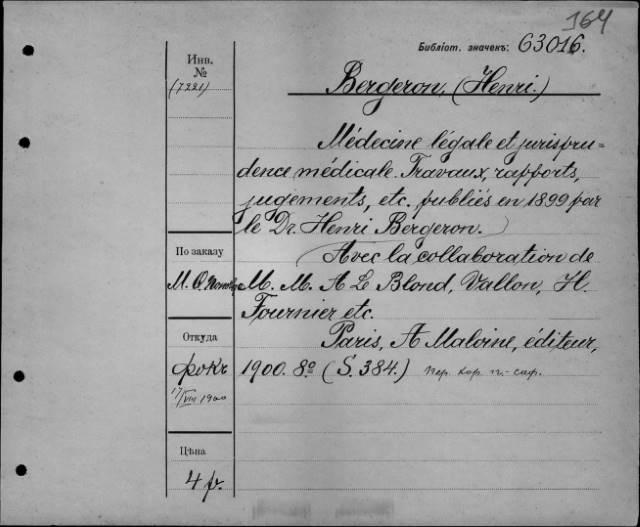 164
Библіот. значекъ: 63016.
Инв.
№
(7221)
Bergeron, (Henri.)
Médecine légale et jurispru-
dence médicale. Travaux, rapports,
jugements, etc. publiés en 1899 par
le Dr. Henri Bergeron.
По заказу
Avec la collaboration de
М. О.
M. M. A Le Blond, Vallon, H.
Fournier etc.
Откуда
Paris, A Maloine, éditeur,
фокъ
1900. 8º (S. 384.) пер. кор. т.-саф.
17/VIII 1900
Цѣна
4 fr.